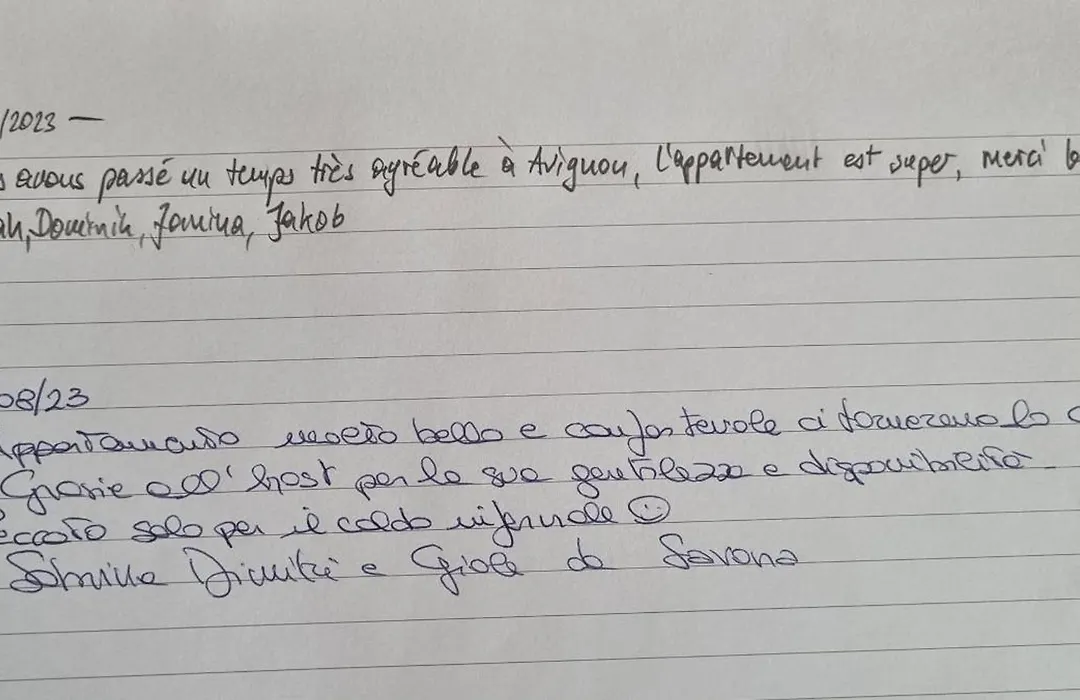 /2023 —
s avons passé un temps très agréable à Avignon, l'appartement est super, merci b
ah, Dominik, Jamina, Jakob
08/23
Appartamento molto bello e confortevole ci torneremo
Grazie all'host per la sua gentilezza e disponibilità
eccato solo per il caldo infernale ☺
Sabrina Dimitri e Gioele da Savona